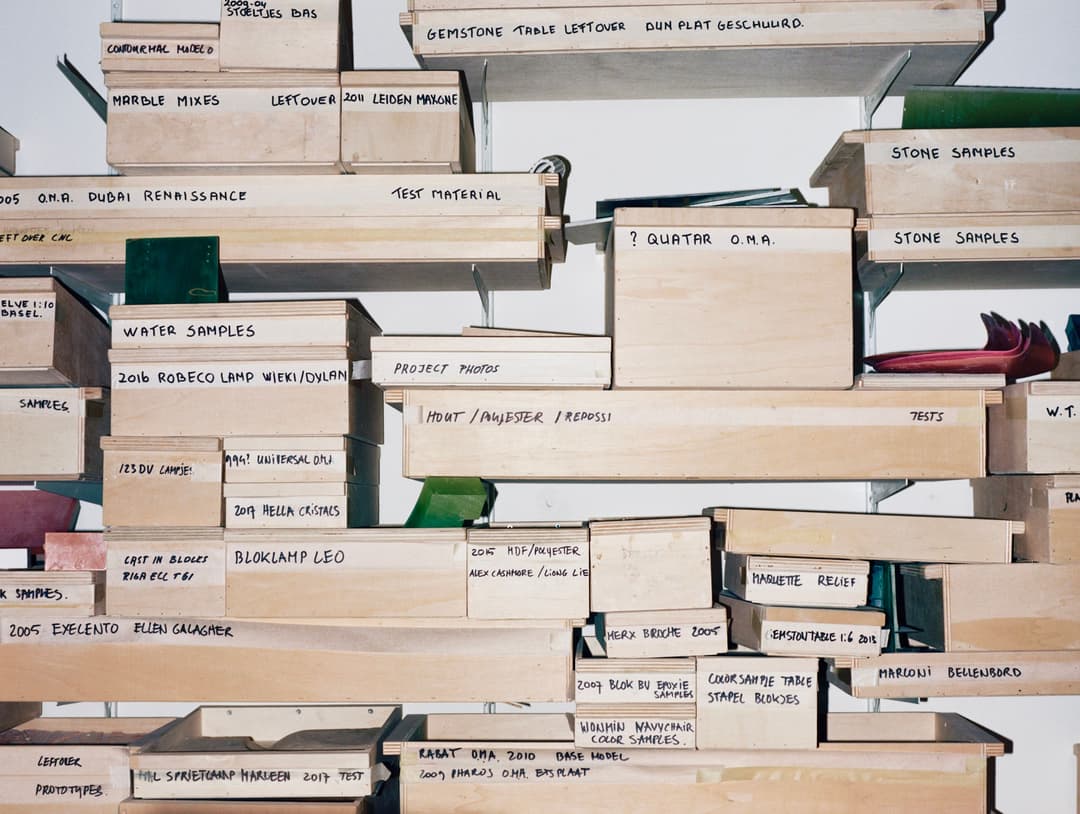 2009-04
STOELTJES BAS
GEMSTONE TABLE LEFTOVER DUN PLAT GESCHUURD.
MARBLE MIXES LEFTOVER
2011 LEIDEN MAXONE
STONE SAMPLES
STONE SAMPLES
005 O.M.A. DUBAI RENAISSANCE TEST MATERIAL
EFTOVER CNC
? QUATAR O.M.A.
ELVE 1:10
BASEL.
WATER SAMPLES
2016 ROBECO LAMP WIEKI/DYLAN
PROJECT PHOTOS
SAMPLES.
HOUT / POLYESTER / REPOSSI TESTS
W.T.
123 DV LAMPJE!
UNIVERSAL
2017 HELLA CRISTALS
CAST IN BLOCKS
BLOKLAMP LEO
2015 MDF/POLYESTER
ALEX CASHMORE / LIONG LIE
MAQUETTE RELIEF
K SAMPLES.
2005 EXELENTO ELLEN GALAGHER
MERX BROCHE 2005
GEMSTONTABLE 1:6 2013
MARCONI BELLENBORD
2007 BLOK BV EPOXIE
SAMPLES
COLORSAMPLE TABLE
STAPEL BLOKJES
WONMIN NAVYCHAIR
COLOR SAMPLES.
LEFTOVER
PROTOTYPES.
MARLEEN 2017 TEST
RABAT O.M.A. 2010 BASE MODEL
2009 PHAROS O.M.A. ETSPLAAT